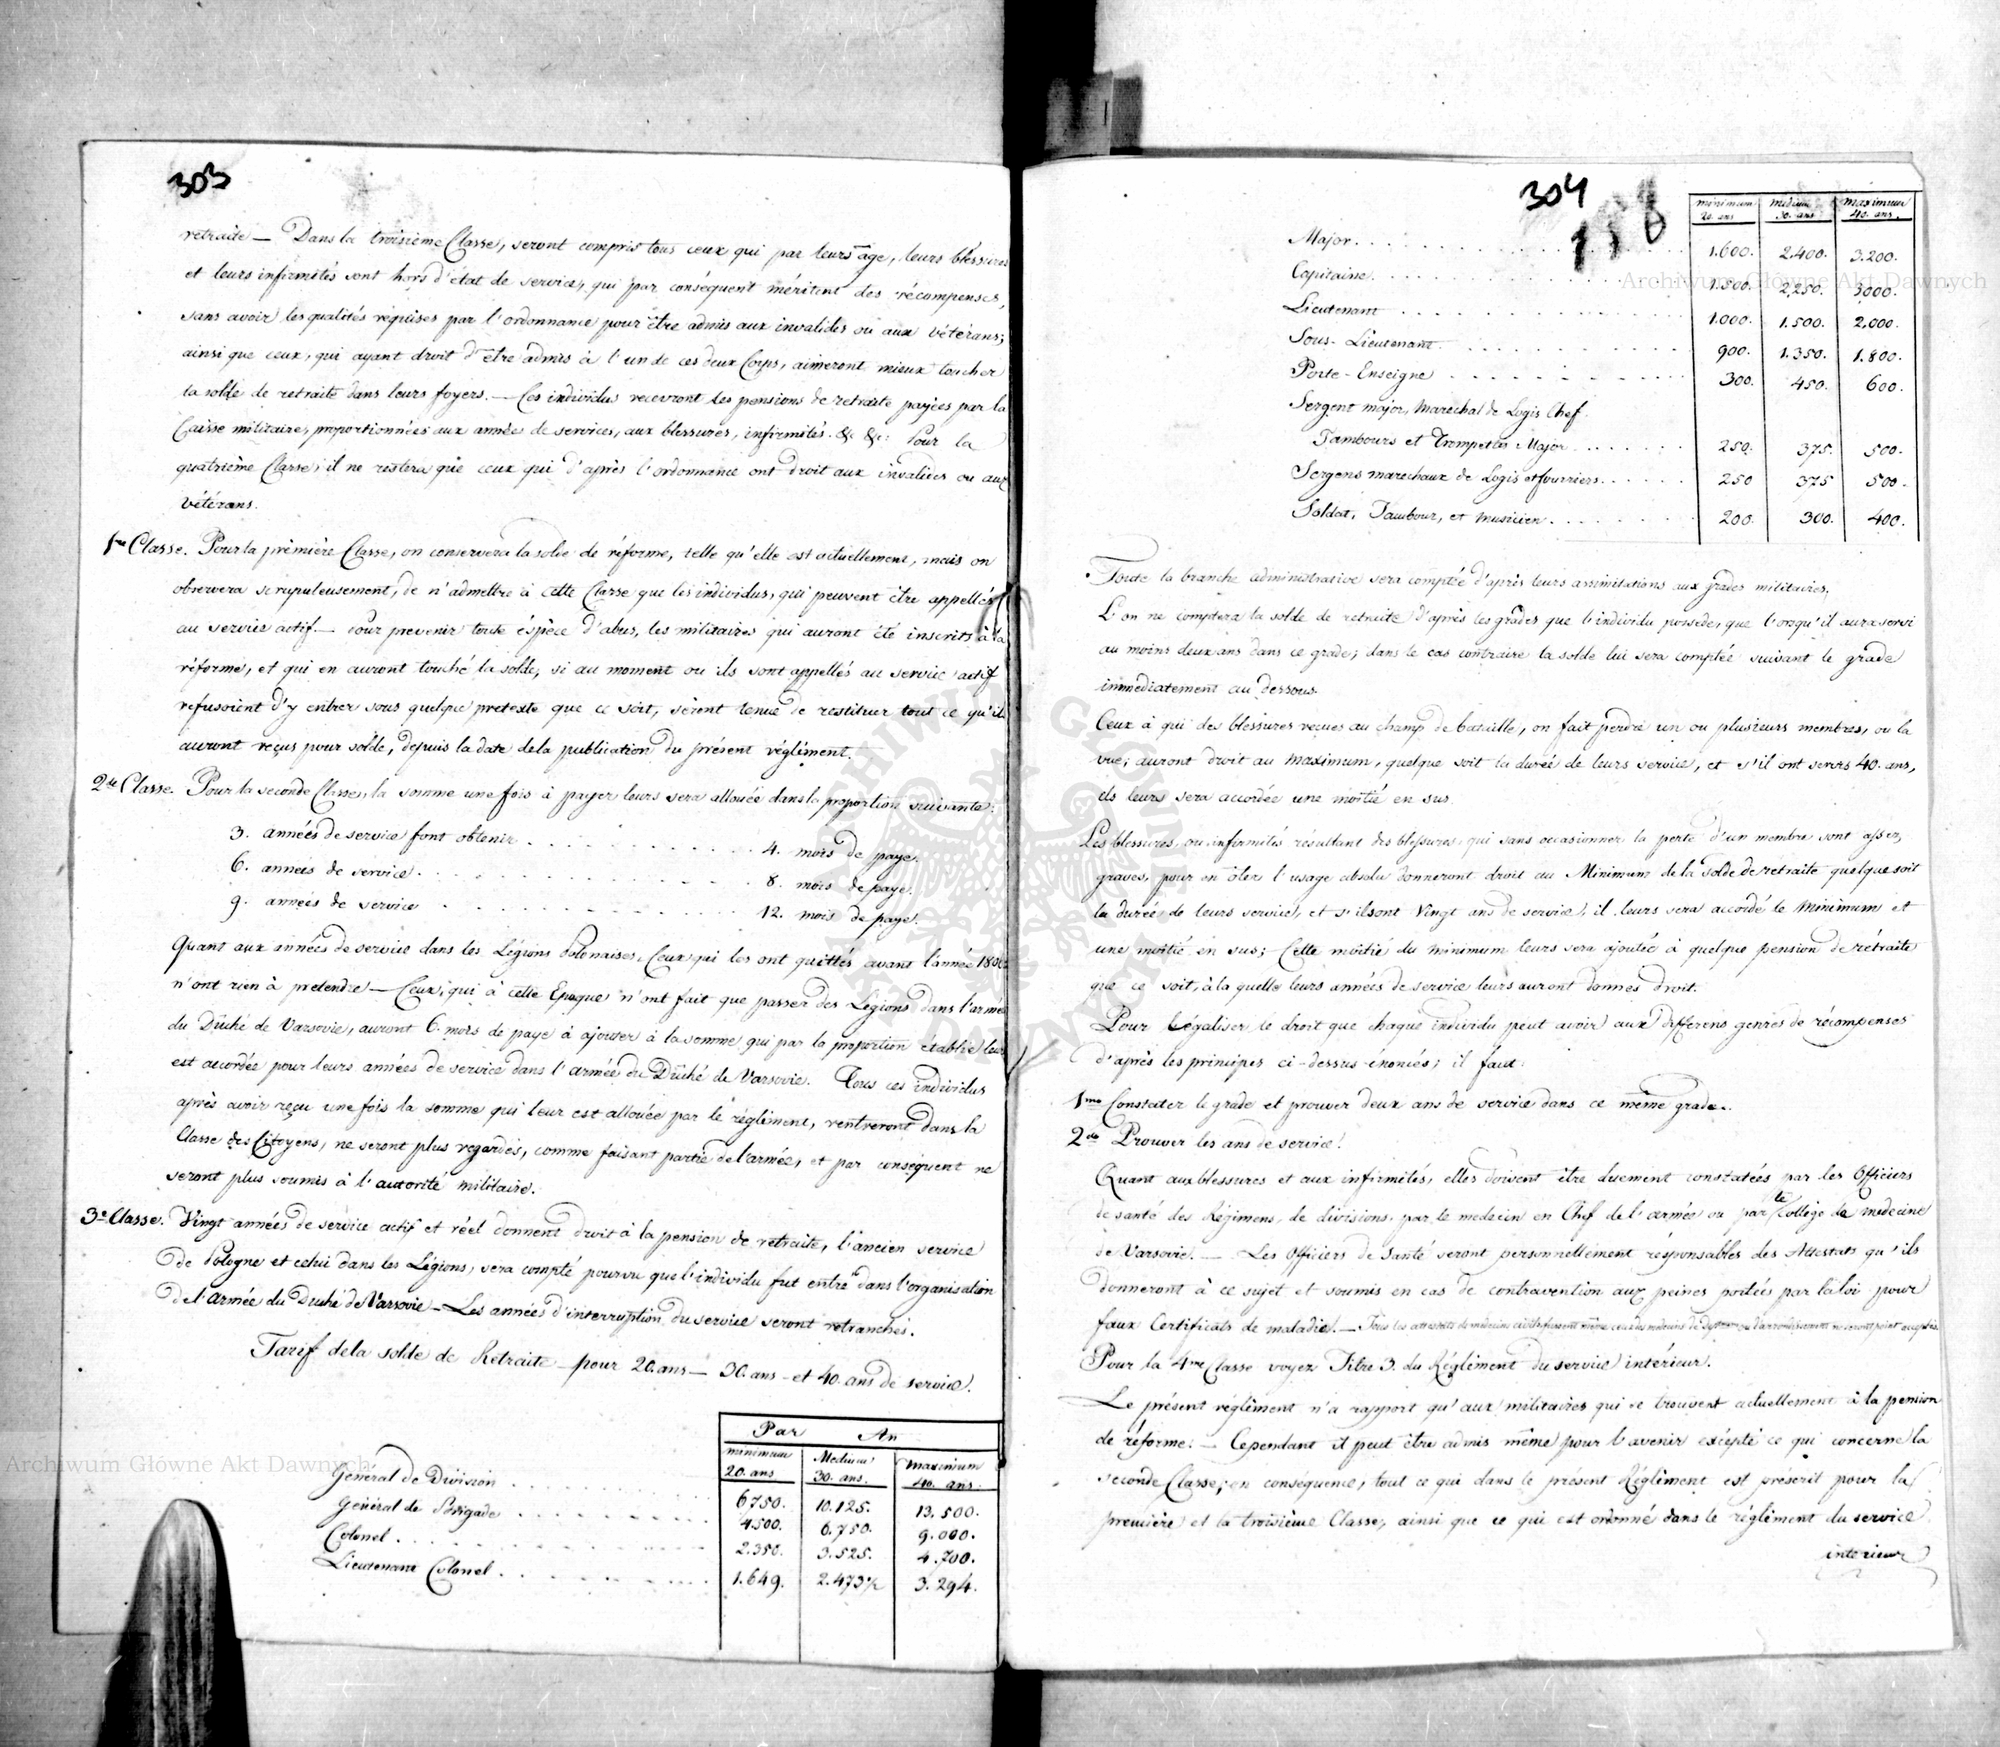 303
retraite — Dans la troisième Classe, seront compris tous ceux qui par leurs âge, leurs blessures
et leurs infirmités sont hors d'état de service, qui par conséquent méritent des récompenses,
sans avoir les qualités requises par l'ordonnance pour être admis aux invalides ou aux vétérans;
ainsi que ceux, qui ayant droit d'être admis à l'un de ces deux Corps, aimeront mieux toucher
la solde de retraite dans leurs foyers. — Ces individus recevront les pensions de retraite payées par la
Caisse militaire, proportionnées aux années de services, aux blessures, infirmités. &c &c: Pour la
quatrième Classe, il ne restera que ceux qui d'après l'ordonnance ont droit aux invalides ou aux
vétérans.
1re Classe. Pour la première Classe, on conservera la solde de réforme, telle qu'elle est actuellement, mais on
observera scrupuleusement, de n'admettre à cette Classe que les individus, qui peuvent être appellés
au service actif. — Pour prevenir toute éspèce d'abus, les militaires qui auront été inscrits à la
réforme, et qui en auront touché la solde, si au moment ou ils sont appellés au service actif
refusoient d'y entrer sous quelque pretexte que ce soit, seront tenus de restituer tout ce qu'ils
auront reçus pour solde, depuis la date de la publication du présent réglément.
2de Classe. Pour la seconde Classe, la somme une fois à payer leurs sera allouée dans la proportion suivante:
3. années de service font obtenir . . . . . . . . . . 4. mois de paye.
6. années de service . . . . . . . . . . 8. mois de paye.
9. années de service . . . . . . . . . . 12. mois de paye.
Quant aux années de service dans les Légions Polonaises, Ceux qui les ont quittés avant l'année
n'ont rien à pretendre — Ceux, qui à cette Epoque n'ont fait que passer des Légions dans l'armée
du Duché de Varsovie, auront 6. mois de paye à ajouter à la somme qui par la proportion etablie leur
est accordée pour leurs années de service dans l'armée du Duché de Varsovie. Tous ces individus
après avoir reçu une fois la somme qui leur est allouée par le réglément, rentreront dans la
Classe des Citoyens, ne seront plus regardés, comme faisant partie de l'armée, et par conséquent ne
seront plus soumis à l'autorité militaire.
3e Classe. Vingt années de service actif et réel donnent droit à la pension de retraite, l'ancien service
de Pologne et celui dans les Légions, sera compté pourvu que l'individu fut entré dans l'organisation
de l'Armée du Duché de Varsovie — Les années d'interruption du service seront retranchés.
Tarif de la solde de Retraite — pour 20. ans — 30. ans — et 40. ans de service.
Par An
minimum 20. ans Medium 30. ans. maximum 40. ans.
Général de Division . . . . . . 6750. 10.125. 13,500.
Général de Brigade . . . . . . 4500. 6.750. 9.000.
Colonel . . . . . . 2.350. 3.525. 4.700.
Lieutenant Colonel . . . . . . 1.649. 2.473½ 3.294.
304
158
minimum 20. ans medium 30. ans maximum 40. ans.
Major . . . . . . 1.600. 2.400. 3.200.
Capitaine . . . . . . 1.500. 2,250. 3000.
Lieutenant . . . . . . 1.000. 1.500. 2,000.
Sous-Lieutenant . . . . . . 900. 1.350. 1.800.
Porte-Enseigne . . . . . . 300. 450. 600.
Sergent major, Marechal de Logis Chef.
Tambours et Trompettes Major . . . . . . 250. 375. 500.
Sergens marechaux de Logis et fourriers . . . . . . 250 375 500.
Soldat, Tambour, et musicien . . . . . . 200. 300. 400.
Toute la branche administrative sera comptée d'après leurs assimilations aux grades militaires.
L'on ne comptera la solde de retraite d'après les grades que l'individu possède, que lorsqu'il aura servi
au moins deux ans dans ce grade; dans le cas contraire la solde lui sera comptée suivant le grade
immédiatement au dessous.
Ceux à qui des blessures reçues au champ de bataille, on fait perdre un ou plusieurs membres, ou la
vue; auront droit au maximum, quelque soit la durée de leurs service, et s'il ont servis 40. ans,
ils leurs sera accordée une moitié en sus.
Les blessures, ou infirmités résultant des blessures, qui sans occasionner la perte d'un membre sont assez
graves, pour en ôter l'usage absolu donneront droit au Minimum de la solde de retraite quelque soit
la durée de leurs service, et s'ils ont Vingt ans de service, il leurs sera accordé le Minimum et
une moitié en sus; Cette moitié du minimum leurs sera ajoutée à quelque pension de rétraite
que ce soit, à la quelle leurs années de service leurs auront donnés droit.
Pour Légaliser le droit que chaque individu peut avoir aux differens genres de récompenses
d'après les principes ci-dessus énoncés; il faut:
1mo Constater le grade et prouver deux ans de service dans ce même grade.
2do Prouver les ans de service.
Quant aux blessures et aux infirmités, elles doivent être duement constatées par les Officiers
de santé des Régimens, de divisions, par le medecin en Chef de l'armée ou par le Collége de médecine
de Varsovie. — Les Officiers de Santé seront personnellement résponsables des Attestats qu'ils
donneront à ce sujet et soumis en cas de contravention aux peines portées par la loi pour
faux Certificats de maladie. — Tous les attestats de médecins civils fussent même ceux des médecins de
Pour la 4me Classe voyez Titre 3. du Réglément du service intérieur.
Le présent réglément n'a rapport qu'aux militaires qui se trouvent actuellement à la pension
de réforme: — Cependant il peut être admis même pour l'avenir excépté ce qui concerne la
seconde Classe; en conséquence, tout ce qui dans le présent Réglément est préscrit pour la
première et la troisième Classe, ainsi que ce qui est ordonné dans le réglément du service
interieur
Archiwum Główne Akt Dawnych
Archiwum Główne Akt Dawnych
ARCHIWUM GŁÓWNE AKT DAWNYCH